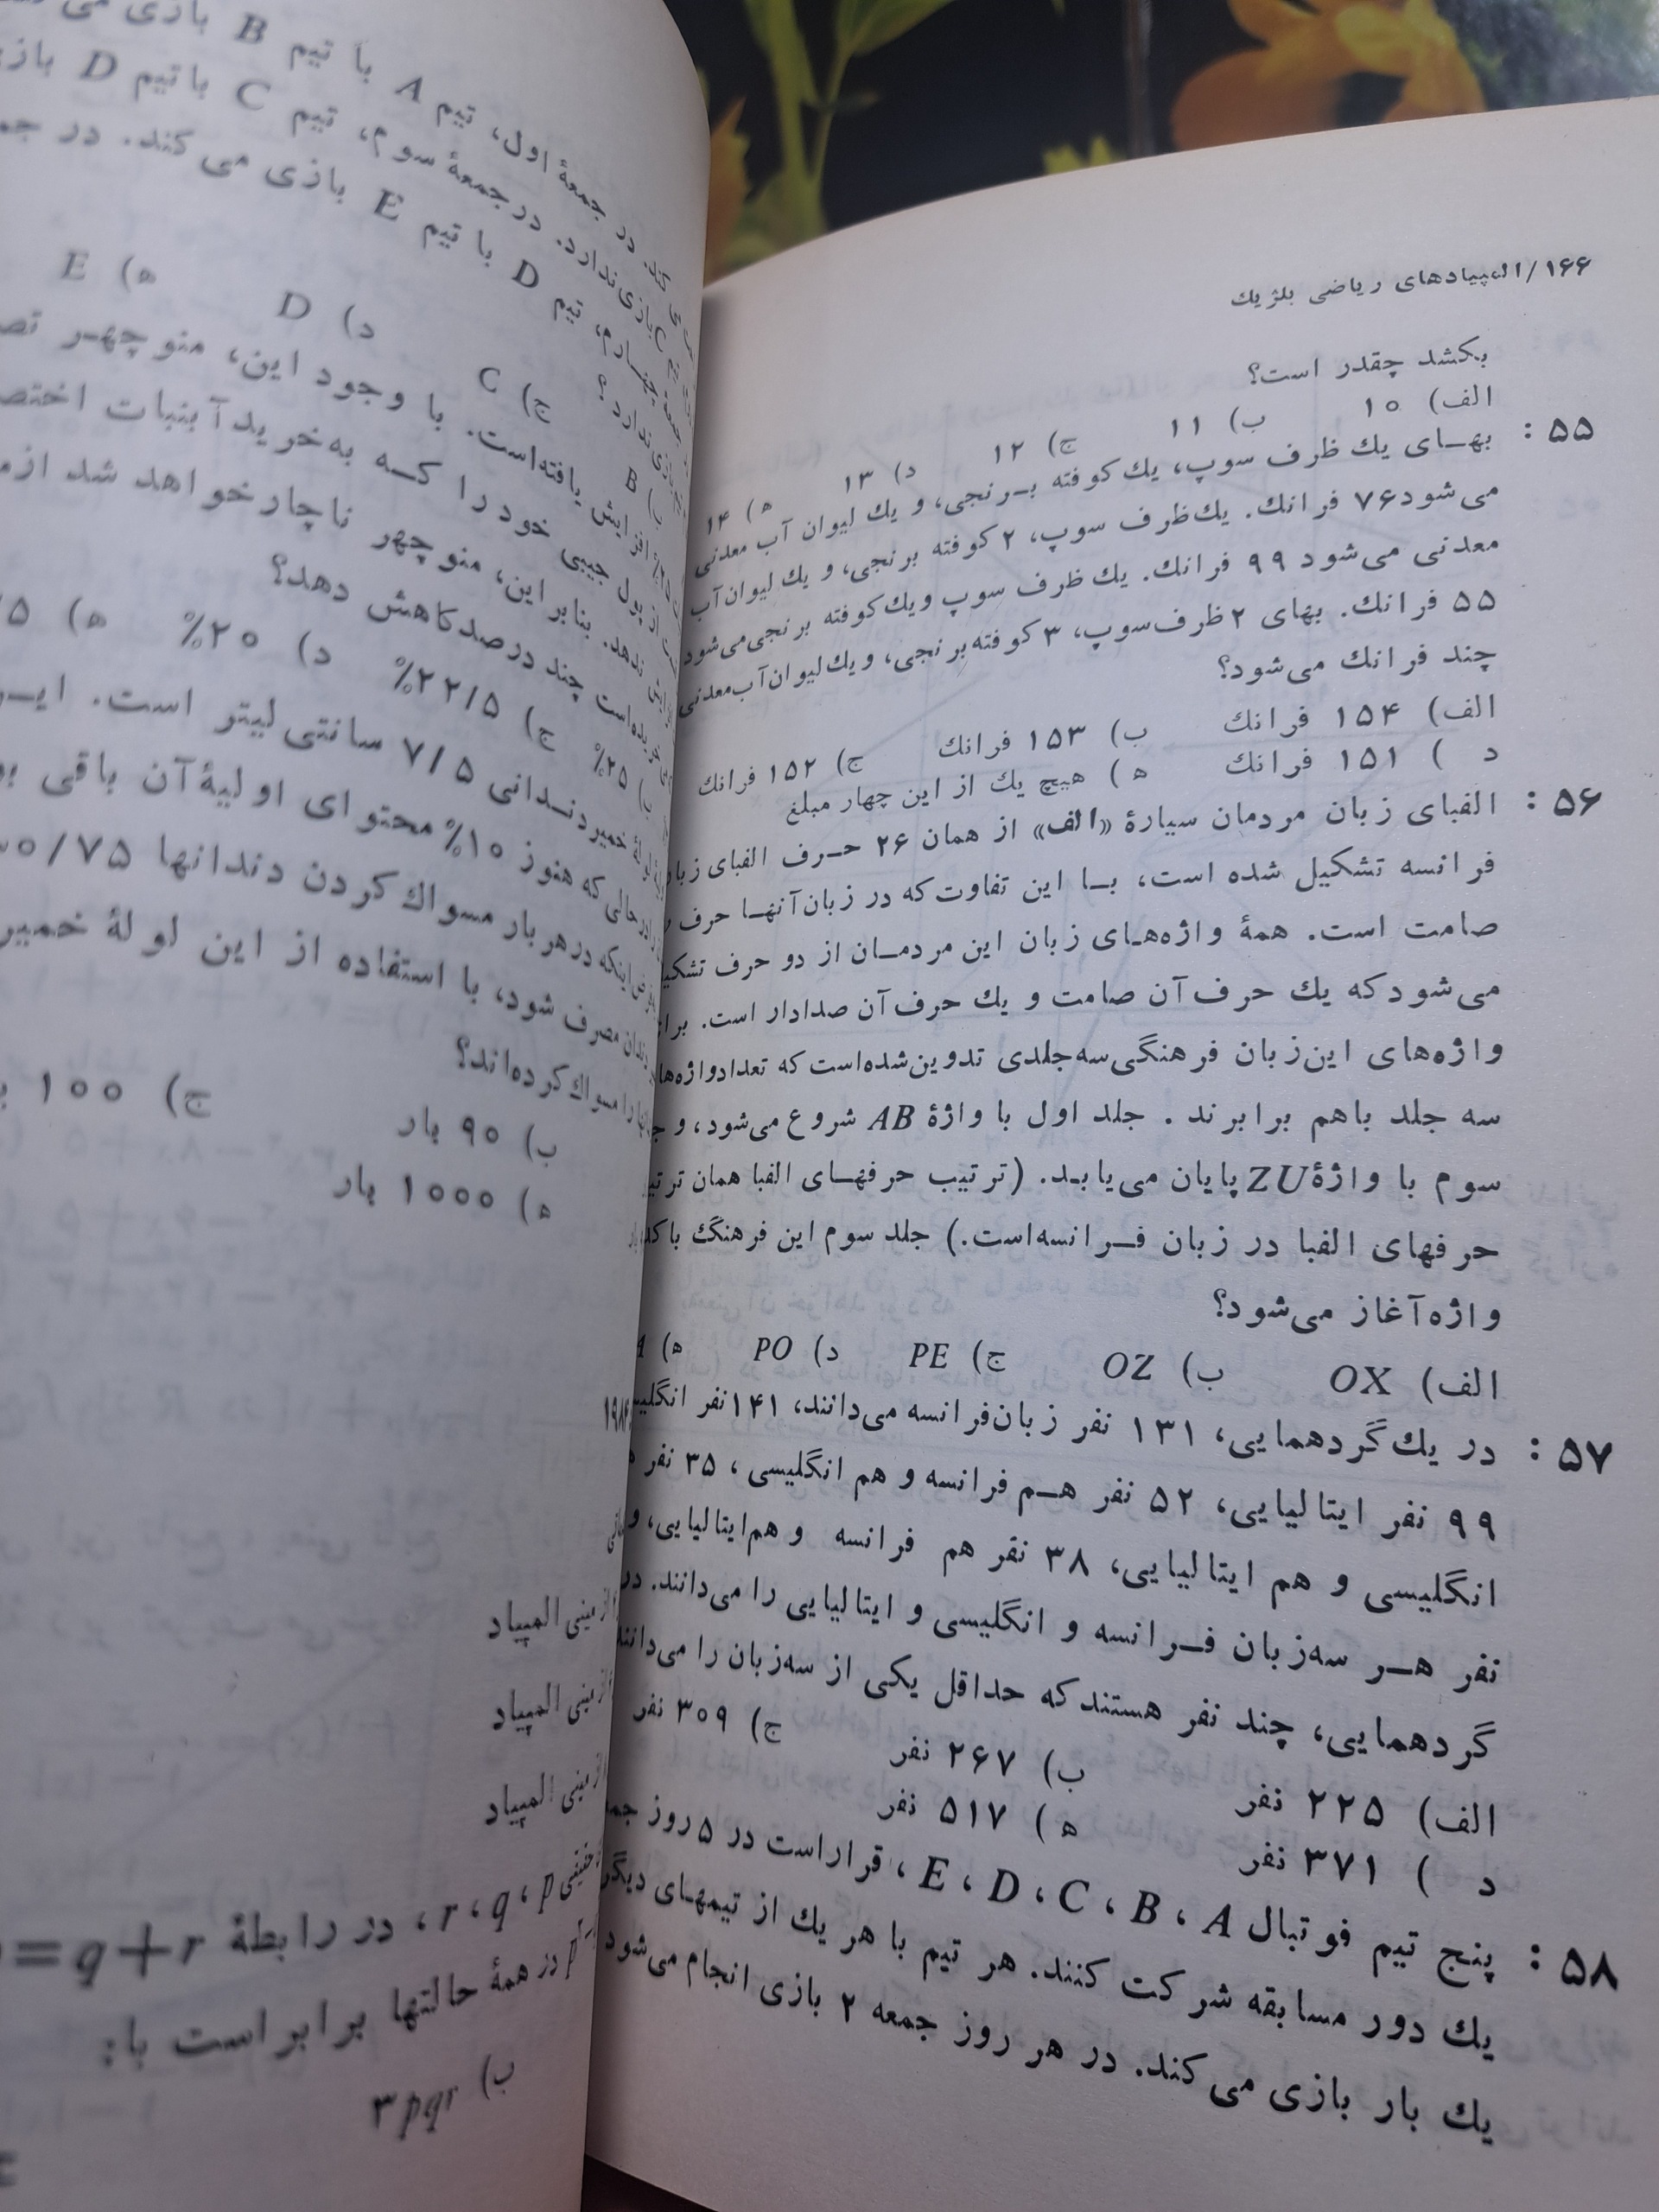 ۱۶۶/المپیادهای ریاضی بلژیک
بکشد چقدر است؟
الف) ۱۰ ب) ۱۱ ج) ۱۲ د) ۱۳ ه) ۱۴
۵۵: بهای یک ظرف سوپ، یک کوفته برنجی، و یک لیوان آب معدنی
می‌شود ۷۶ فرانک. یک ظرف سوپ، ۲ کوفته برنجی، و یک لیوان آب
معدنی می‌شود ۹۹ فرانک. یک ظرف سوپ و یک کوفته برنجی می‌شود
۵۵ فرانک. بهای ۲ ظرف سوپ، ۳ کوفته برنجی، و یک لیوان آب معدنی
چند فرانک می‌شود؟
الف) ۱۵۴ فرانک ب) ۱۵۳ فرانک ج) ۱۵۲ فرانک
د) ۱۵۱ فرانک ه) هیچ یک از این چهار مبلغ
۵۶: الفبای زبان مردمان سیارهٔ «الف» از همان ۲۶ حرف الفبای زبان
فرانسه تشکیل شده است، با این تفاوت که در زبان آنها حرف
صامت است. همهٔ واژه‌های زبان این مردمان از دو حرف تشکیل
می‌شود که یک حرف آن صامت و یک حرف آن صدادار است. برای
واژه‌های این زبان فرهنگی سه جلدی تدوین شده‌است که تعداد واژه‌های
سه جلد باهم برابرند. جلد اول با واژهٔ AB شروع می‌شود، و
سوم با واژهٔ ZU پایان می‌یابد. (ترتیب حرفهای الفبا همان ترتیب
حرفهای الفبا در زبان فرانسه‌است.) جلد سوم این فرهنگ با کدام
واژه آغاز می‌شود؟
الف) OX ب) OZ ج) PE د) PO ه)
۵۷: در یک گردهمایی، ۱۳۱ نفر زبان فرانسه می‌دانند، ۱۴۱ نفر انگلیسی
۹۹ نفر ایتالیایی، ۵۲ نفر هم فرانسه و هم انگلیسی، ۳۵ نفر
انگلیسی و هم ایتالیایی، ۳۸ نفر هم فرانسه و هم ایتالیایی، و
نفر هر سه زبان فرانسه و انگلیسی و ایتالیایی را می‌دانند. در
گردهمایی، چند نفر هستند که حداقل یکی از سه زبان را می‌دانند
الف) ۲۲۵ نفر ب) ۲۶۷ نفر ج) ۳۰۹ نفر
د) ۳۷۱ نفر ه) ۵۱۷ نفر
۵۸: پنج تیم فوتبال A، B، C، D، E، قرار است در ۵ روز جمعه
یک دور مسابقه شرکت کنند. هر تیم با هر یک از تیمهای دیگر
یک بار بازی می‌کند. در هر روز جمعه ۲ بازی انجام می‌شود
کند. در جمعهٔ اول، تیم A با تیم B بازی
بازی ندارد. در جمعهٔ سوم، تیم C با تیم D
تیم D با تیم E بازی می‌کند. در
ب) B ج) C د) D ه) E
افزایش یافته است. با وجود این، منوچهر
از پول جیبی خود را که به خرید آبنبات
ندهد. بنابر این، منوچهر ناچار خواهد شد
چند درصد کاهش دهد؟
ب) ۲۵% ج) ۲۲/۵% د) ۲۰% ه)
خمیردندانی ۷/۵ سانتی لیتر است.
در حالی که هنوز ۱۰% محتوای اولیهٔ آن باقی
اینکه در هر بار مسواک کردن دندانها
مصرف شود، با استفاده از این لولهٔ
را مسواک کرده‌اند؟
ب) ۹۰ بار ج) ۱۰۰
ه) ۱۰۰۰ بار
از مینی المپیاد
از مینی المپیاد
از مینی المپیاد
p، q، r، در رابطهٔ =q+r
در همهٔ حالتها برابر است با:
ب) ۳pqr